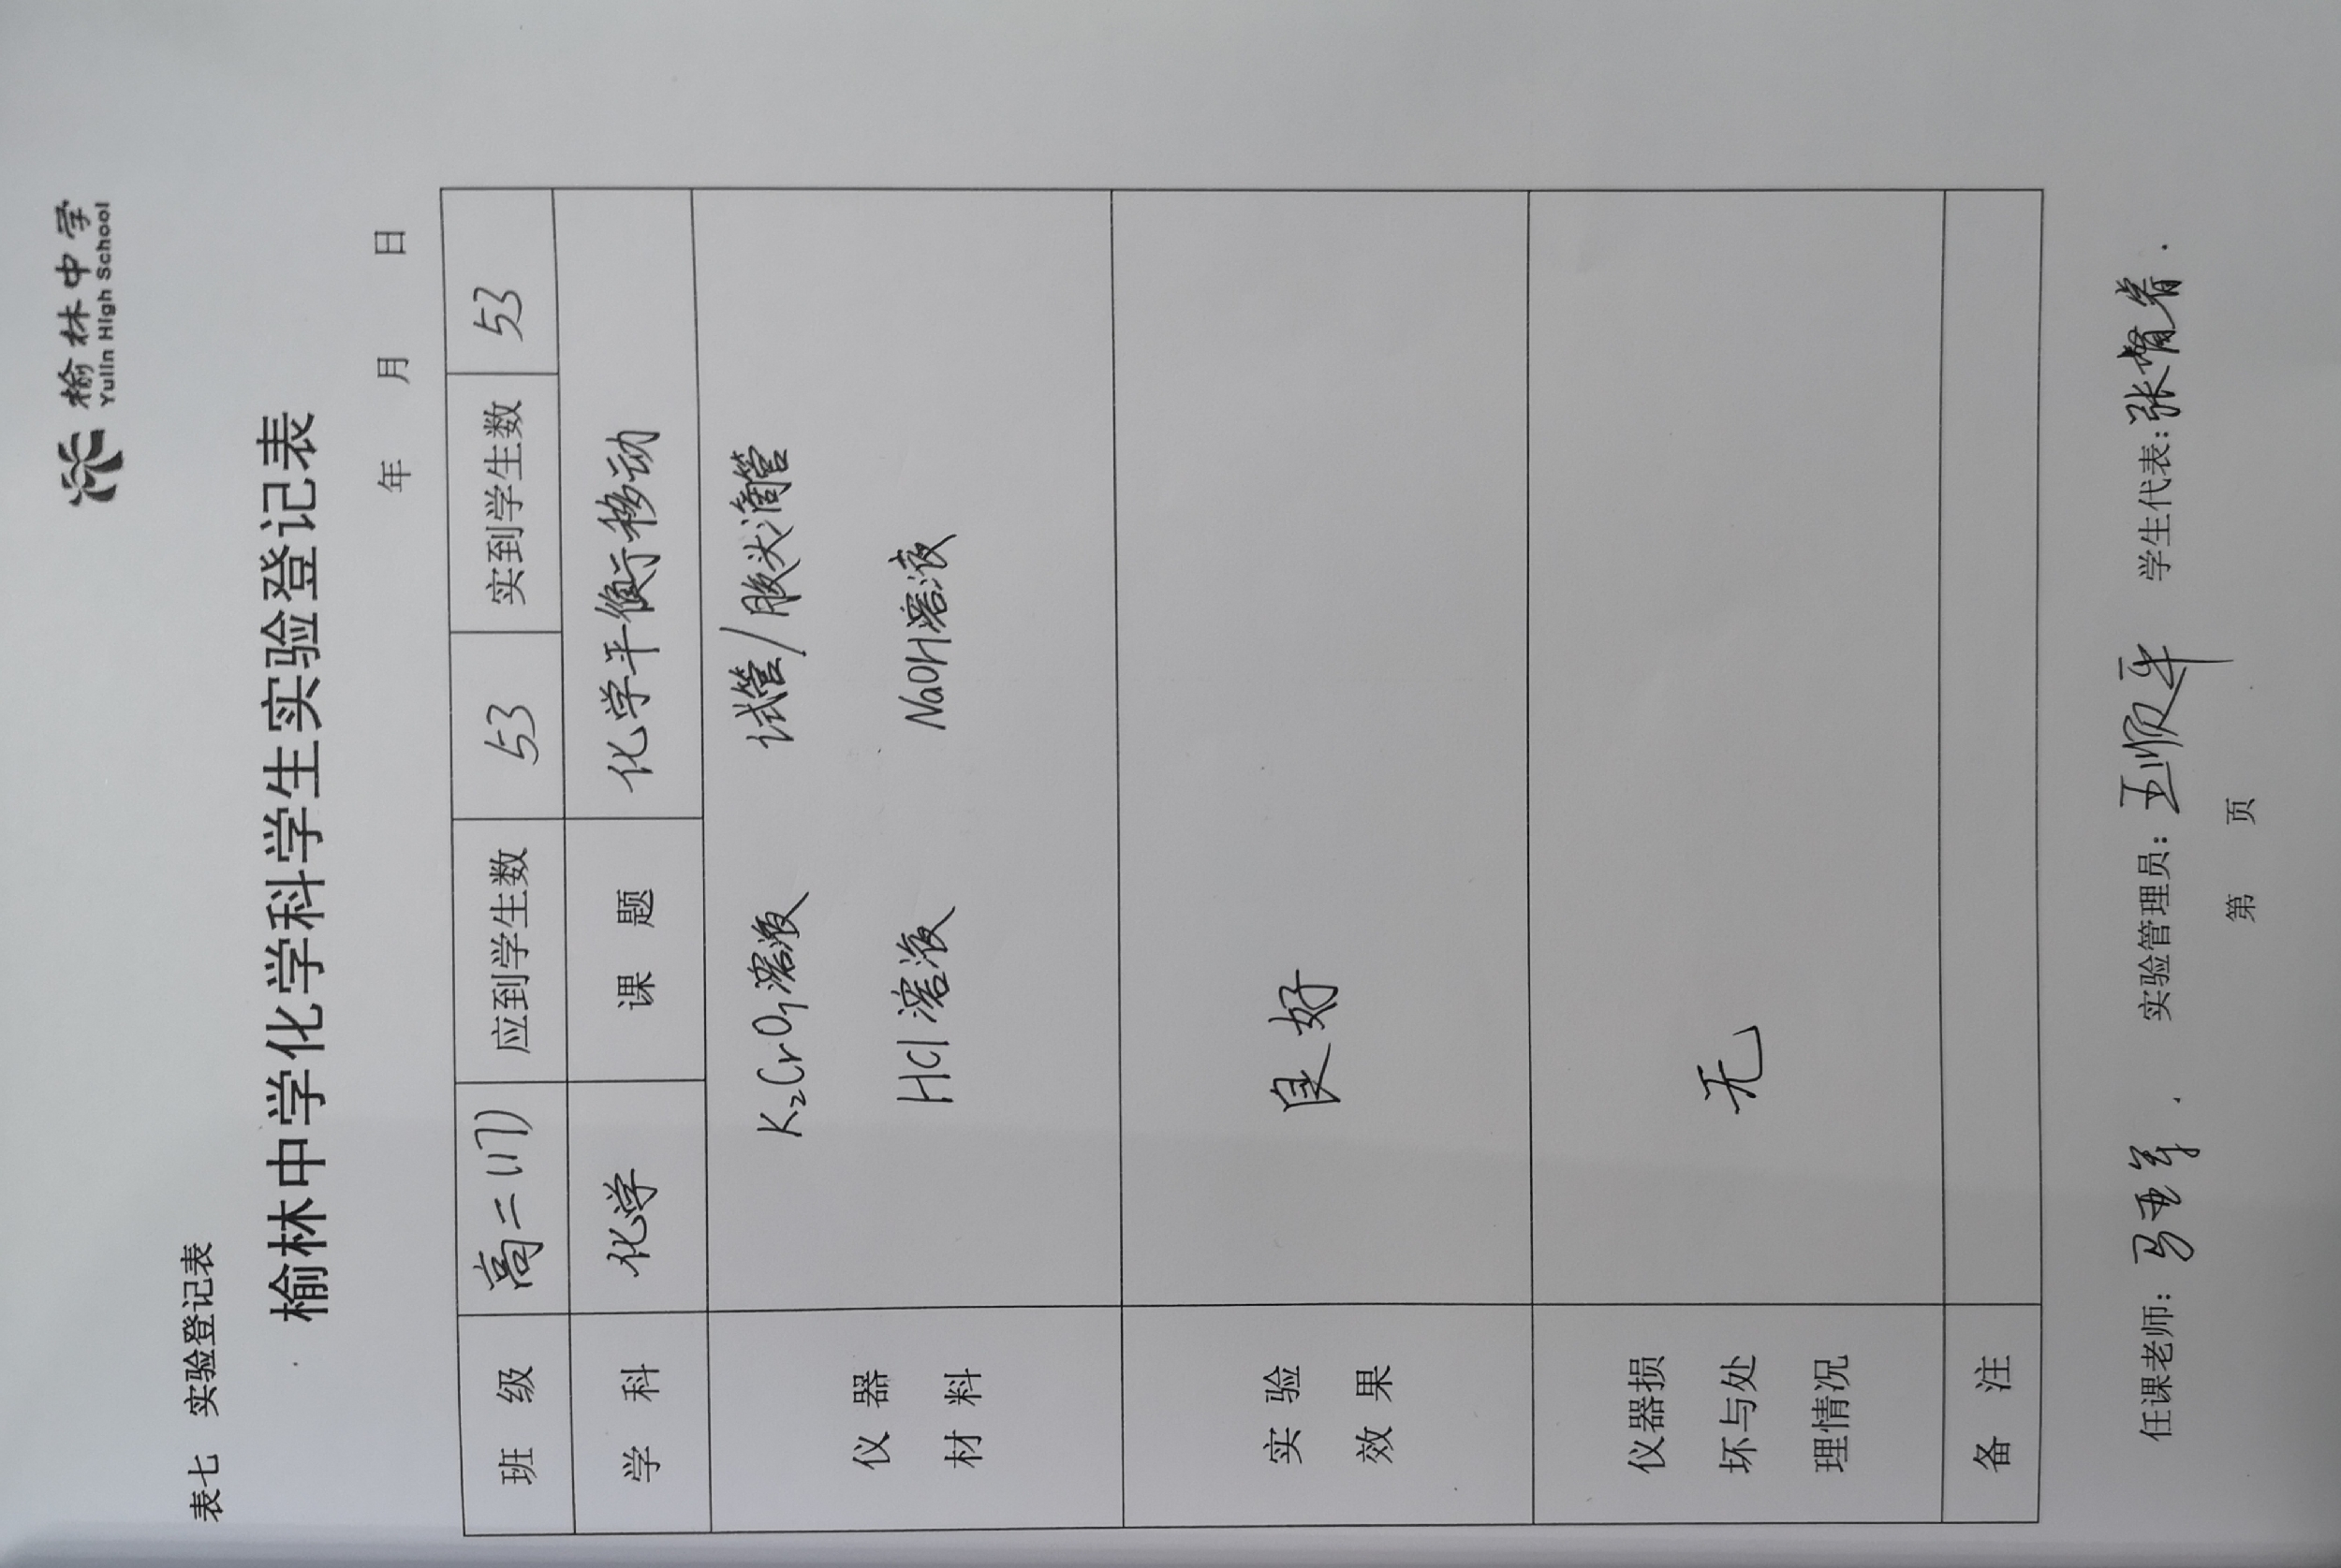 榆林中学
Yulin High School
表七 实验登记表
榆林中学化学学科学生实验登记表
年 月 日
班 级 高二(17) 应到学生数 53 实到学生数 53
学 科 化学 课 题 化学平衡移动
仪 器
材 料
K₂CrO₇溶液 试管/胶头滴管
HCl溶液 NaOH溶液
实 验
效 果
良好
仪器损
坏与处
理情况
无
备 注
任课老师: 马亚军 实验管理员: 王顺平 学生代表: 张
第 页